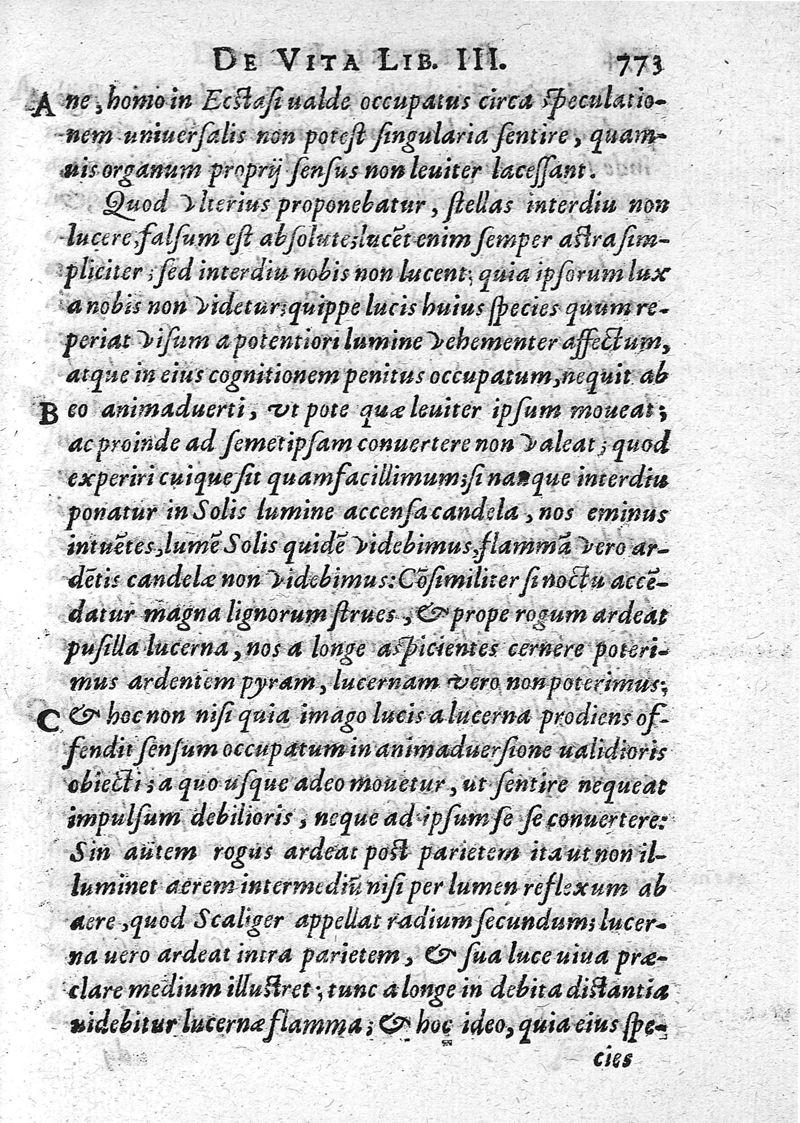 DE VITA LIB. III. 773
A ne, homo in Ecstasi ualde occupatus circa speculatio-
nem universalis non potest singularia sentire, quam-
uis organum proprij sensus non leuiter lacessant.
Quod vlterius proponebatur, stellas interdiu non
lucere, falsum est absolute; lucēt enim semper astra sim-
pliciter; sed interdiu nobis non lucent; quia ipsorum lux
a nobis non videtur; quippe lucis huius species quum re-
periat visum a potentiori lumine vehementer affectum,
atque in eius cognitionem penitus occupatum, nequit ab
B eo animaduerti, vt pote quæ leuiter ipsum moueat;
ac proinde ad semetipsam conuertere non valeat; quod
experiri cuique sit quamfacillimum; si nanque interdiu
ponatur in Solis lumine accensa candela, nos eminus
intuētes, lumē Solis quidē videbimus, flammā vero ar-
dētis candelæ non videbimus: Cōsimiliter si noctu accē-
datur magna lignorum strues, & prope rogum ardeat
pusilla lucerna, nos a longe aspicientes cernere poteri-
mus ardentem pyram, lucernam vero non poterimus;
C & hoc non nisi quia imago lucis a lucerna prodiens of-
fendit sensum occupatum in animaduersione ualidioris
obiecti; a quo usque adeo mouetur, ut sentire nequeat
impulsum debilioris, neque ad ipsum se se conuertere:
Sin autem rogus ardeat post parietem ita ut non il-
luminet aerem intermediū nisi per lumen reflexum ab
aere, quod Scaliger appellat radium secundum; lucer-
na uero ardeat intra parietem, & sua luce uiua præ-
clare medium illustret; tunc a longe in debita distantia
uidebitur lucernæ flamma; & hoc ideo, quia eius spe-
cies